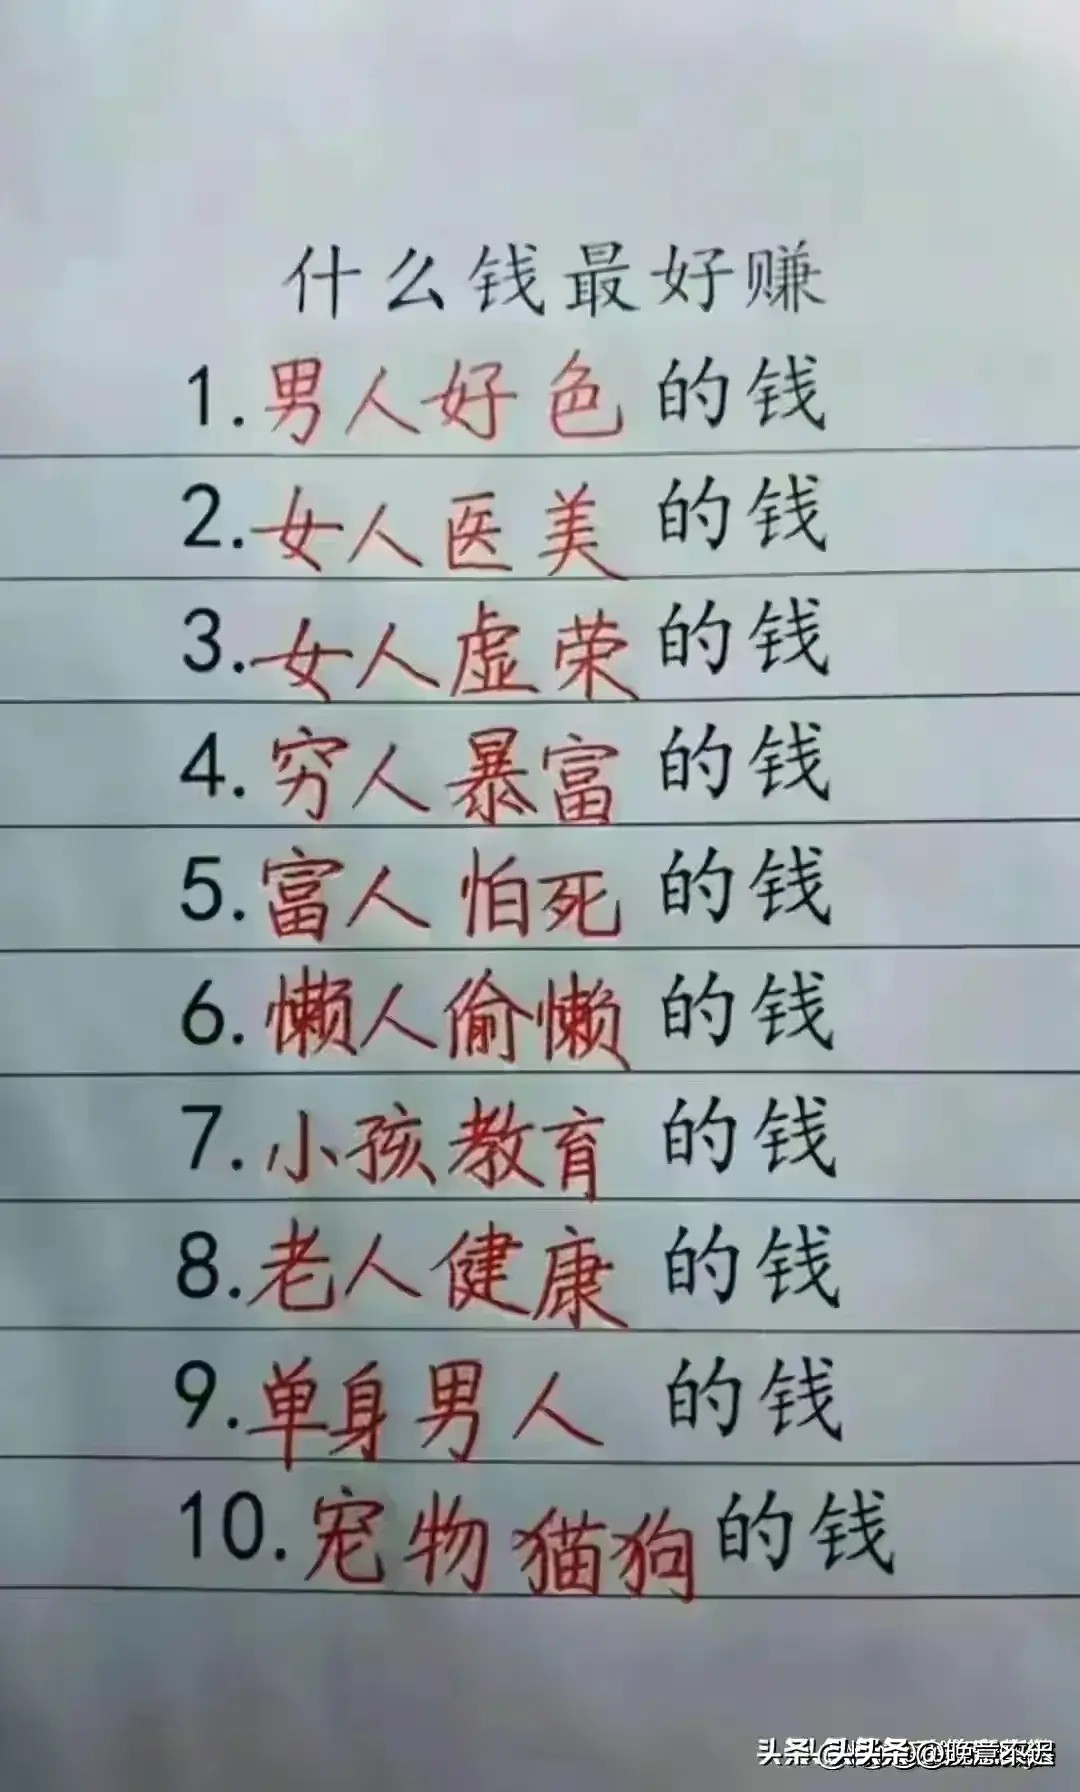 什么钱最好赚
1.男人好色的钱
2.女人医美的钱
3.女人虚荣的钱
4.穷人暴富的钱
5.富人怕死的钱
6.懒人偷懒的钱
7.小孩教育的钱
8.老人健康的钱
9.单身男人的钱
10.宠物猫狗的钱
头条 头条 @晚意不迟